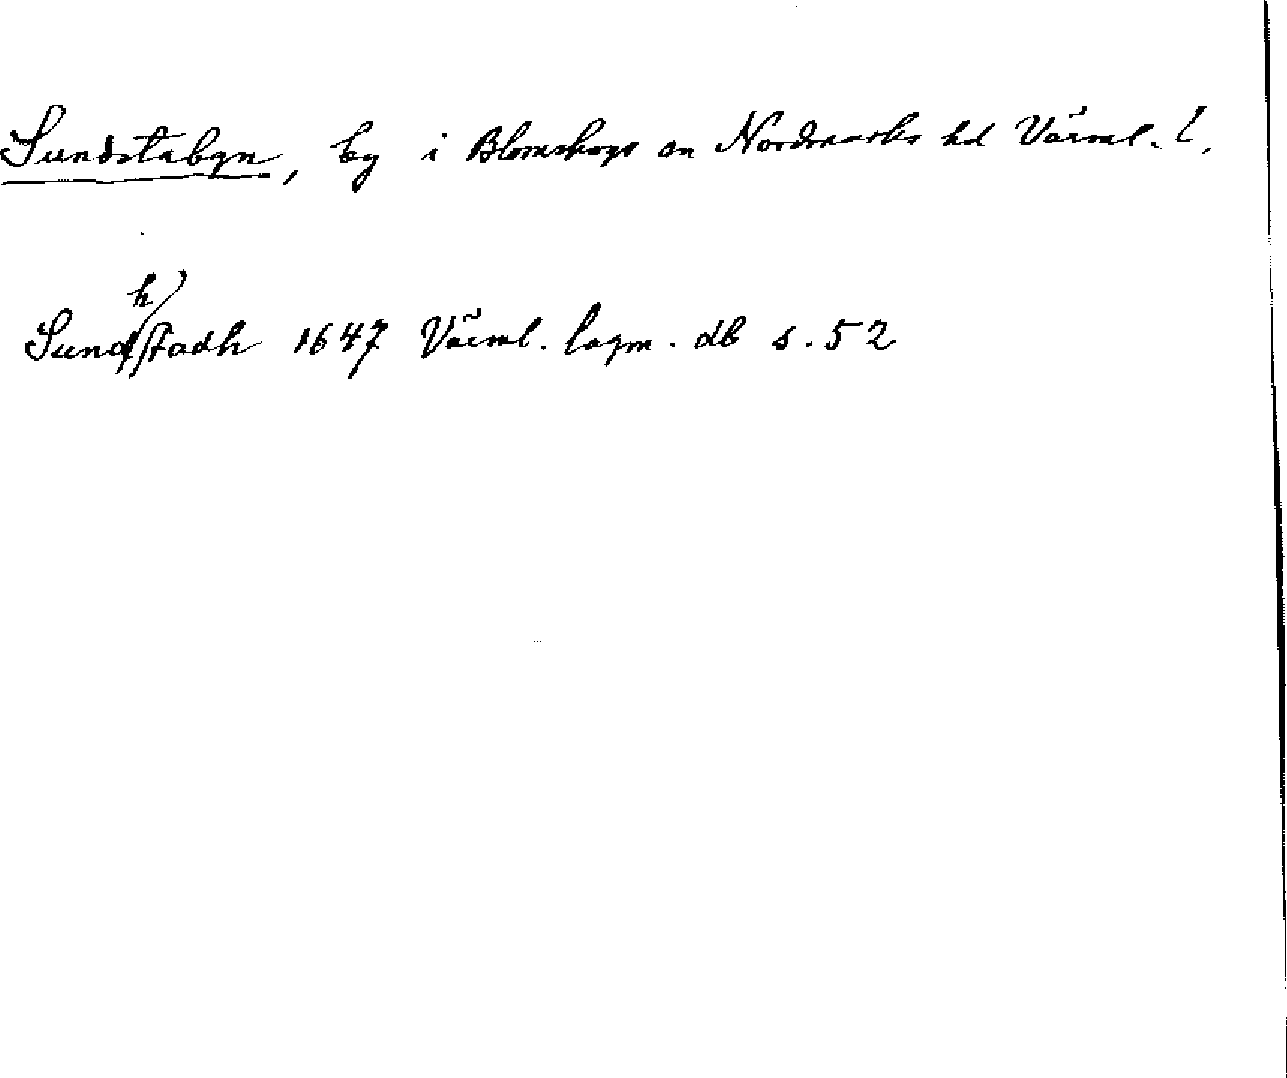 Sundstabyn, by i Blomskogs sn Nordmarks hd Värml. l.
Sundhstadh 1647 Värml. lagm. db s. 52